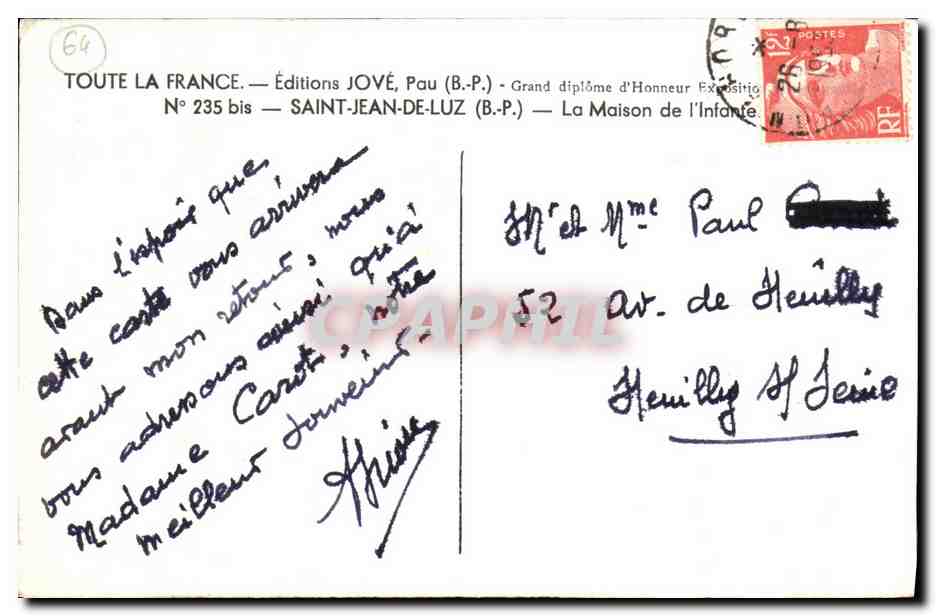 64
TOUTE LA FRANCE. — Éditions JOVÉ, Pau (B.-P.) - Grand diplôme d'Honneur Expositio
N° 235 bis — SAINT-JEAN-DE-LUZ (B.-P.) — La Maison de l'Infante.
12F POSTES
RF
26 - 8
Dans l'espoir que
cette carte vous arrivera
avant mon retour, nous
vous adressons ainsi qu'à
Madame Carot, notre
meilleur souvenir.
Mr et Mme Paul
52 av. de Neuilly
Neuilly s/ Seine
CPAPHIL